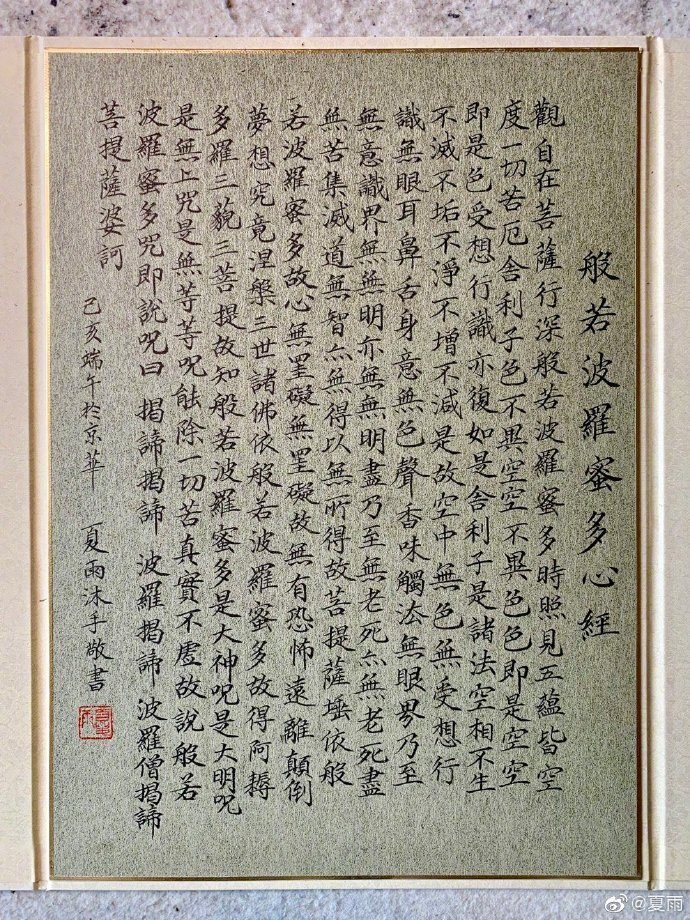 般若波羅蜜多心經
觀自在菩薩行深般若波羅蜜多時照見五蘊皆空
度一切苦厄舍利子色不異空空不異色色即是空空
即是色受想行識亦復如是舍利子是諸法空相不生
不滅不垢不淨不增不減是故空中無色無受想行
識無眼耳鼻舌身意無色聲香味觸法無眼界乃至
無意識界無無明亦無無明盡乃至無老死亦無老死盡
無苦集滅道無智亦無得以無所得故菩提薩埵依般
若波羅蜜多故心無罣礙無罣礙故無有恐怖遠離顛倒
夢想究竟涅槃三世諸佛依般若波羅蜜多故得阿耨
多羅三藐三菩提故知般若波羅蜜多是大神呪是大明呪
是無上咒是無等等呪能除一切苦真實不虛故說般若
波羅蜜多咒即說呪曰 揭諦揭諦 波羅揭諦 波羅僧揭諦
菩提薩婆訶
己亥端午於京華 夏雨沐手敬書
@夏雨